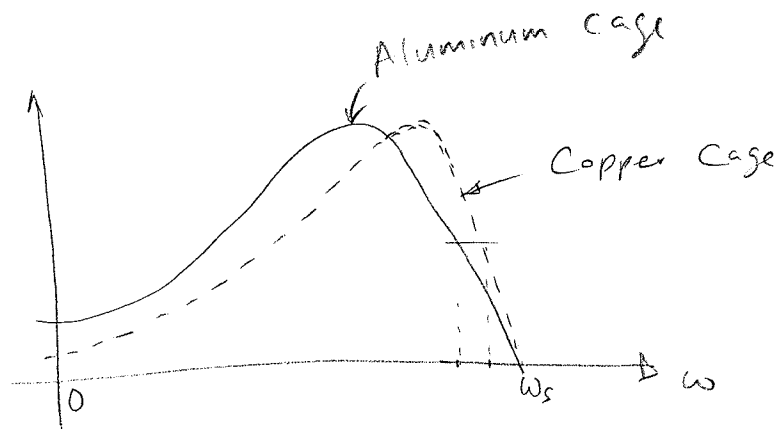 Aluminum Cage
Copper Cage
0
ωs
ω